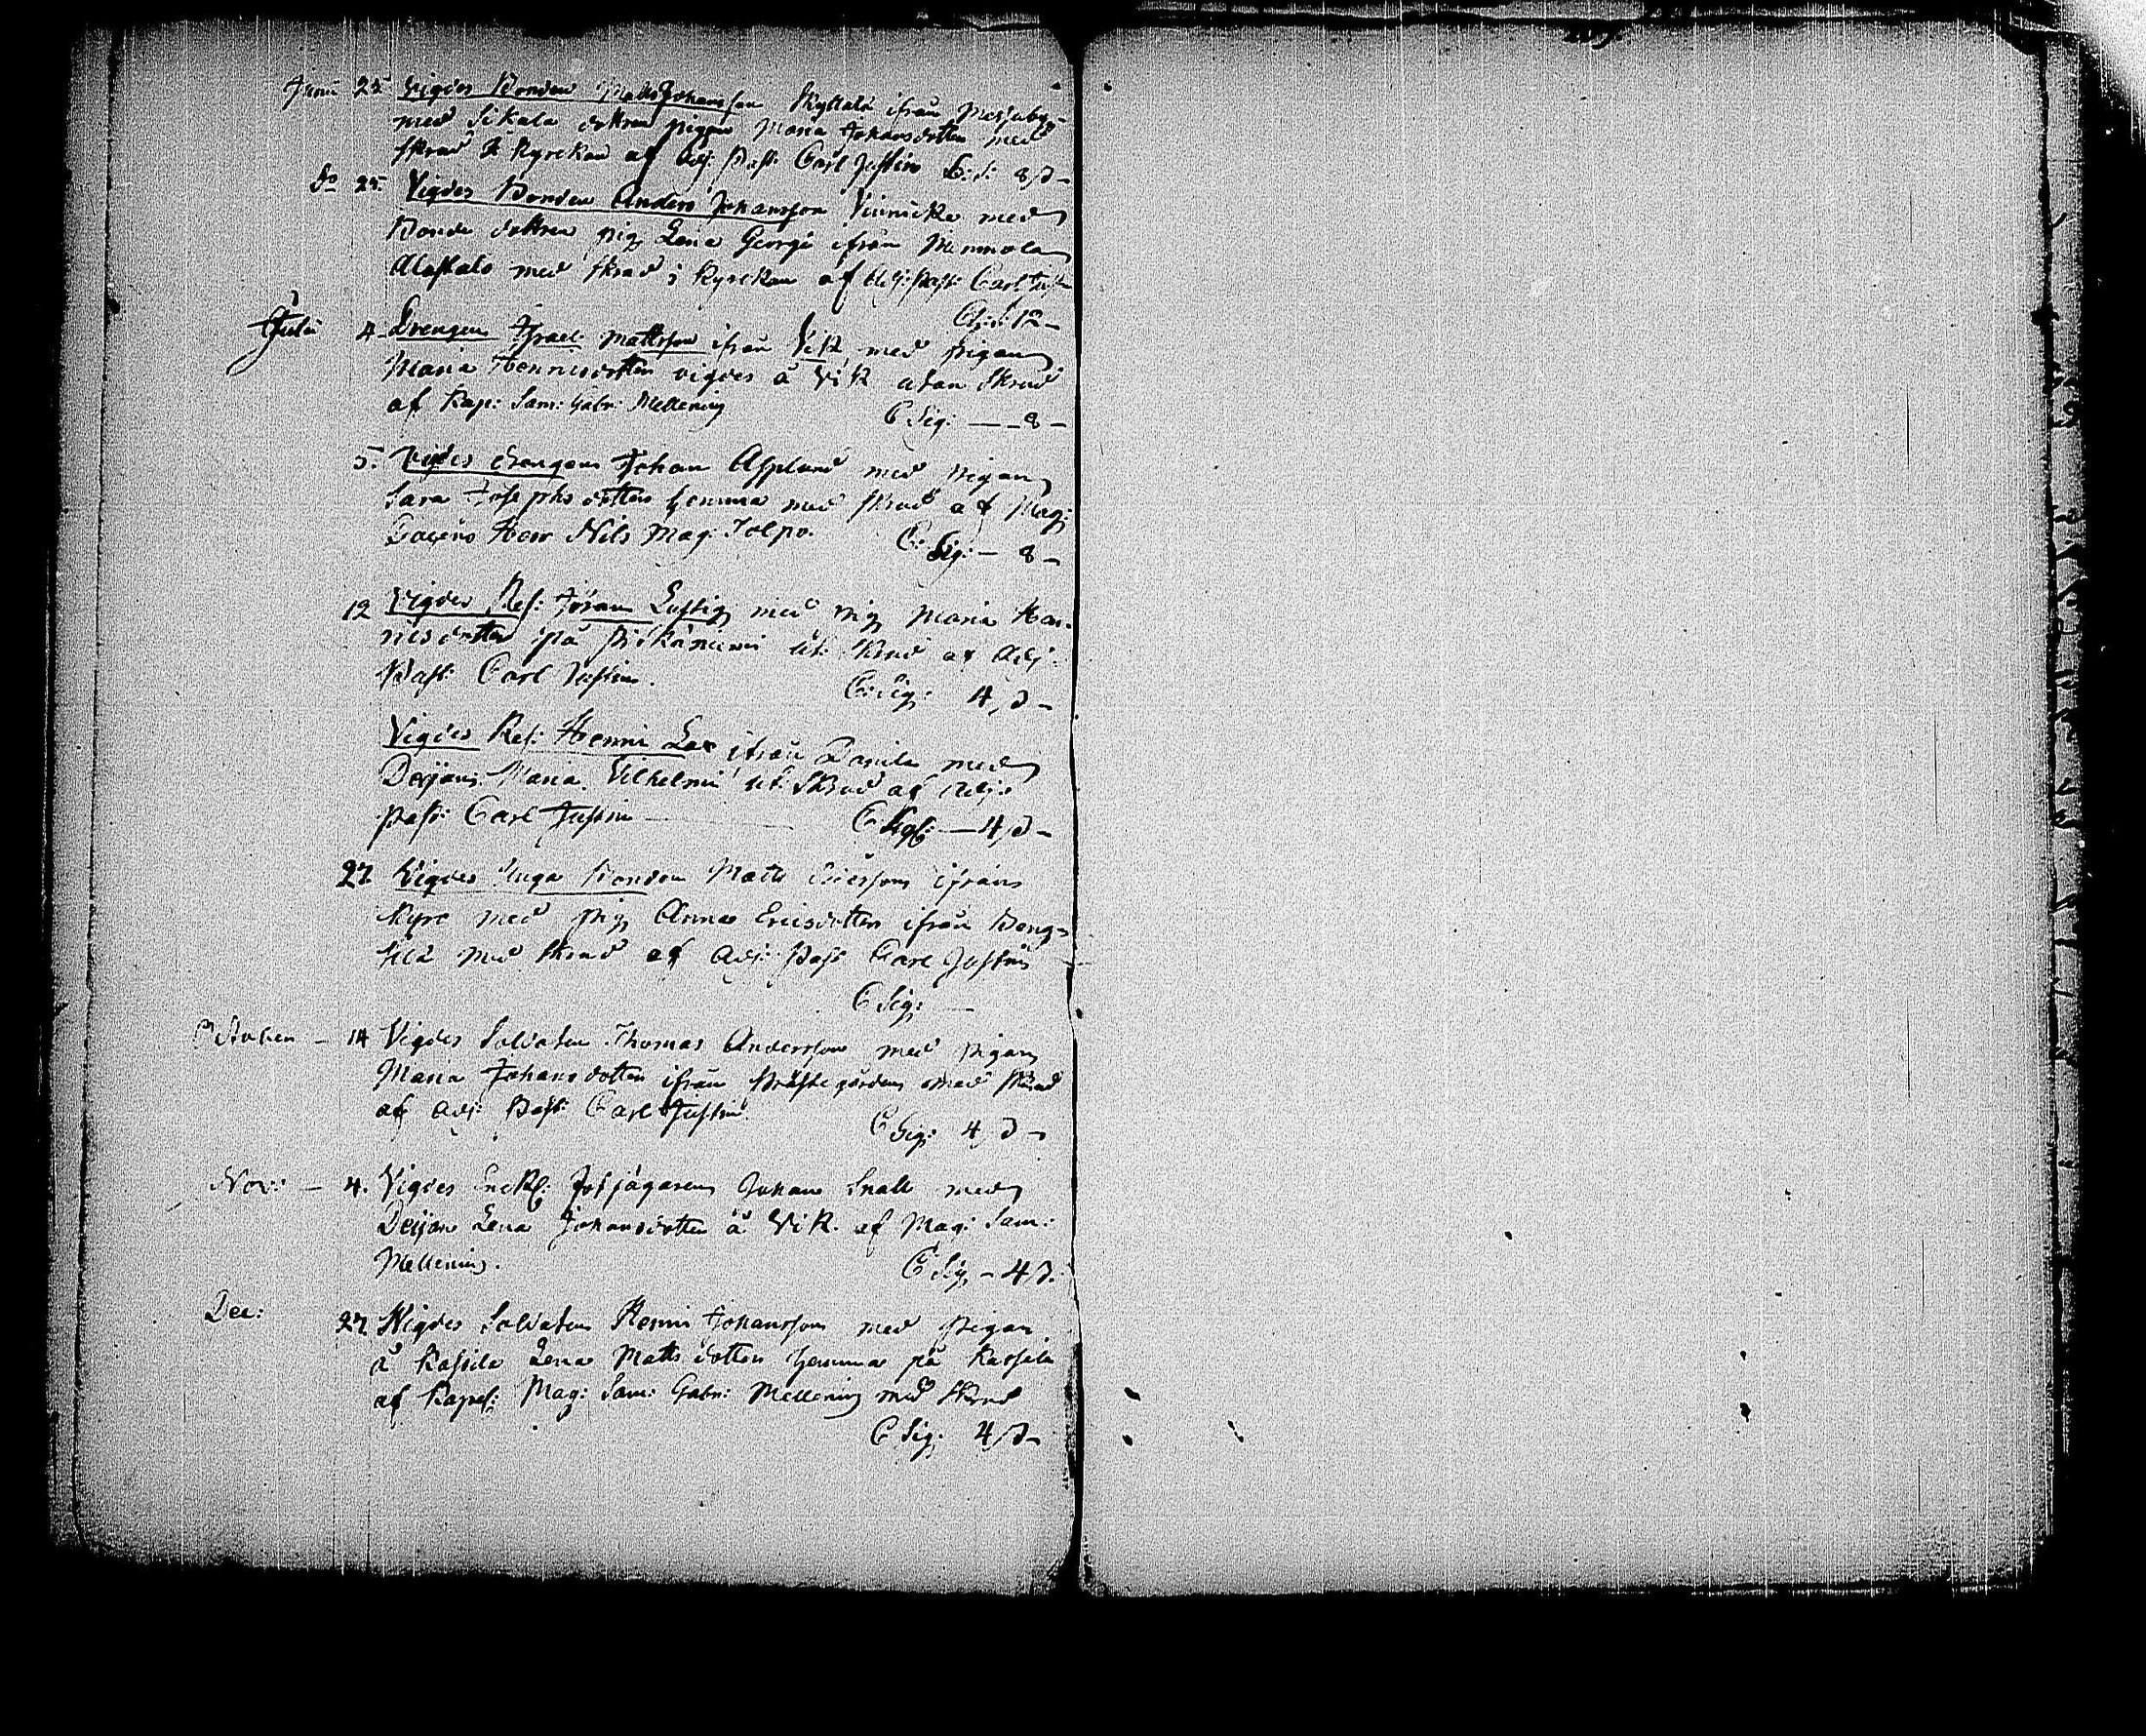 Junii 25. Vigdes Bonden Matts Johansson Kyttälä ifrån
med Sikala dottren pigan Maria Johansdotter med
skrud i Kyrckan af Adj: Past: Carl Justin C: S: 8 d –
do 25. Vigdes Bonden Anders Johansson med
Bonde dottren pig. Lena Georgi ifrån
Alastalo med skrud i Kyrckan af Adj: Past: Carl
C: S: 12 –
Julii 4. Drengen Israel Mattsson ifrån Vik med pigan
Maria Hennisdotter vigdes å Vik utan skrud
af Kap: Sam: Gabr: Mellening C Sig: — 8 –
5. Vigdes drengen Johan Asplund med pigan
Sara Josephsdotter hemma med skrud af Mag:
Herr Nils Mag: Tolpo. C: Sig: – 8 –
12 Vigdes Ref: Jöran Lustig med pig. Maria Han-
nisdotter på ut: skrud af Adj:
Past: Carl Justin. C: Sig: 4, d –
Vigdes Ref: Henric Lax ifrån Danila med
Deijan Maria Vilhelmi ut: Skrud af Adj:
Past: Carl Justin C: Sig: — 4 d –
27. Vigdes unga Bonden Matts Ericsson ifrån
Kyro med pig. Anna Ericsdotter ifrån Beng-
tilä med skrud af Adj: Past Carl Justin
C Sig: —
October – 14 Vigdes Soldaten Thomas Andersson med pigan
Maria Johansdotter ifrån Prästegården med skrud
af Adj: Past: Carl Justin. C Sig: 4, d –
Nov: – 4. Vigdes Enkl: Johan Snäll med
Deijan Lena Johansdotter å Vik. af Mag: Sam:
Mellening. C Sig, – 4 d.
Dec: 27. Vigdes Soldaten Henric Johansson med pigan
å Kassila Lena Mattsdotter hemma på Kassila
af Kapel: Mag: Sam: Gabr: Mellening med skrud
C Sig: 4 d –